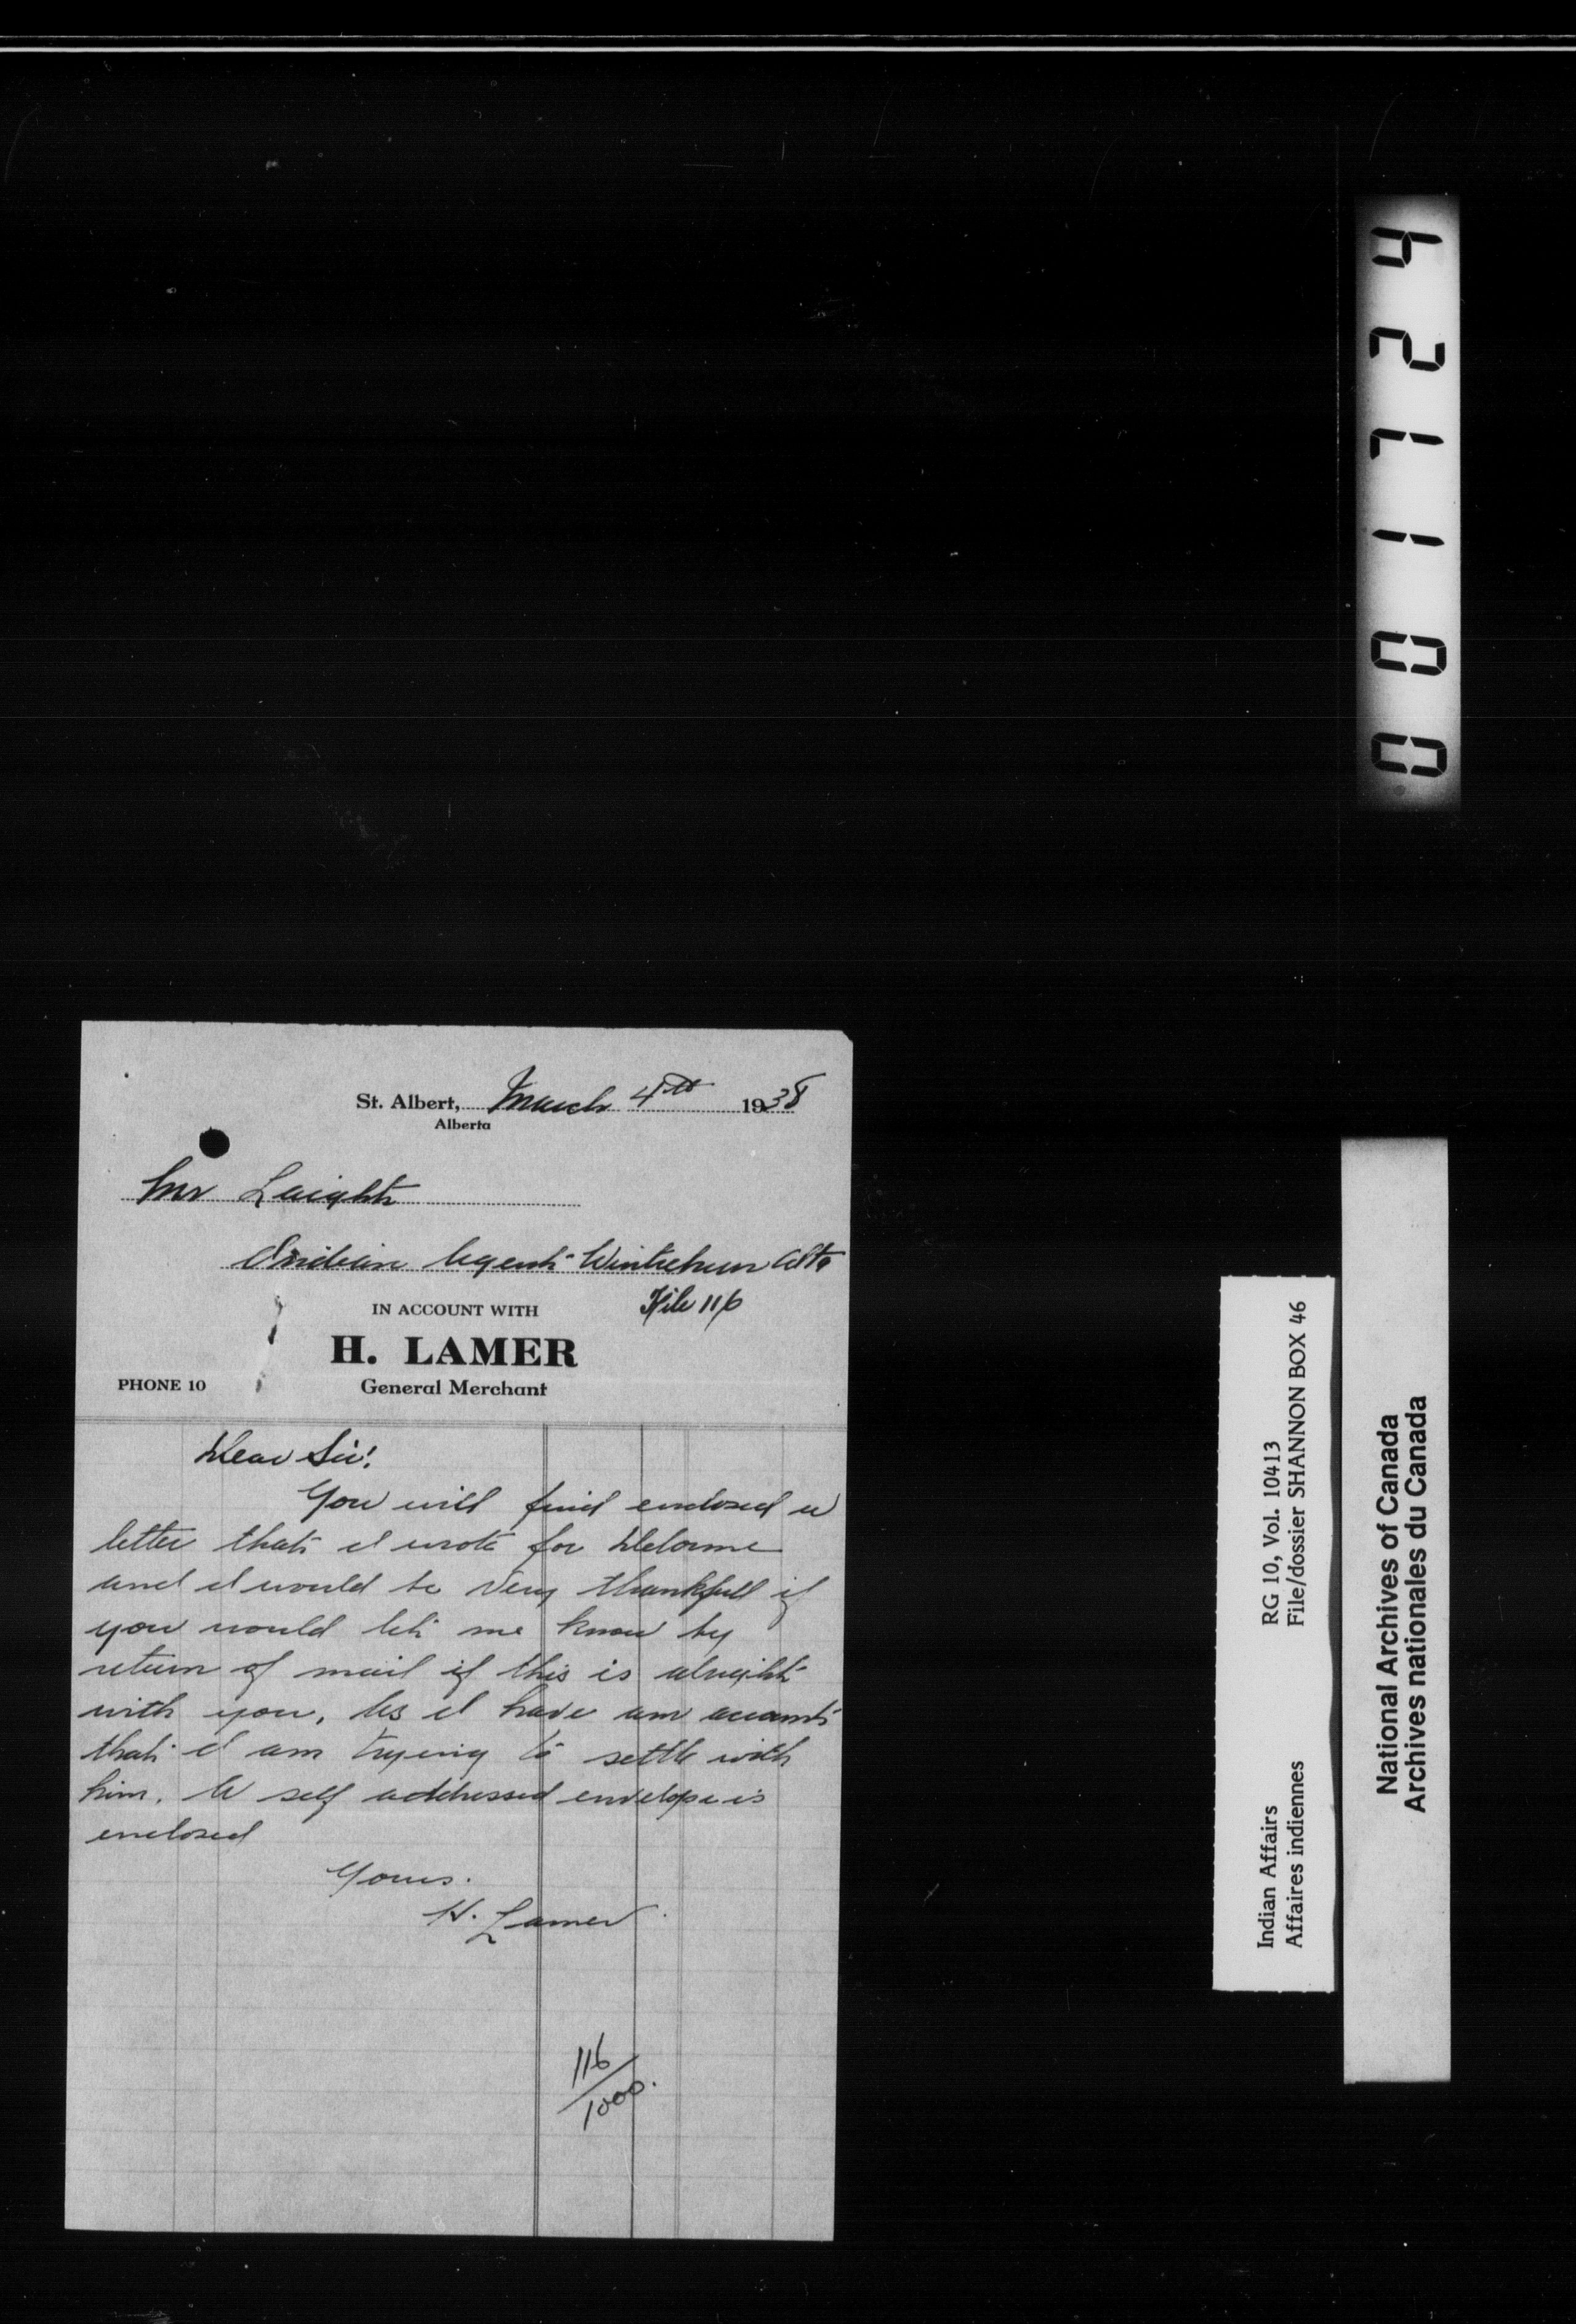 St. Albert, March 4th 1938
Alberta
Mr Laight
Indian Agent Winterburn Alta
File 116
IN ACCOUNT WITH
H. LAMER
PHONE 10
General Merchant
Dear Sir!
You will find enclosed a
letter that I wrote for Delorme
and I would be very thankfull if
you would let me know by
return of mail if this is alright
with you, As I have an account
that I am trying to settle with
him. A self addressed envelope is
enclosed
Yours.
H. Lamer
116
1000.
001724
Indian Affairs RG 10, Vol. 10413
Affaires indiennes File/dossier SHANNON BOX 46
National Archives of Canada
Archives nationales du Canada